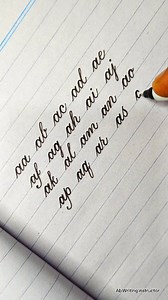 aa ab ac ad ae
af ag ah ai aj
ak al am an ao
ap aq ar as
Ab Writing instructor